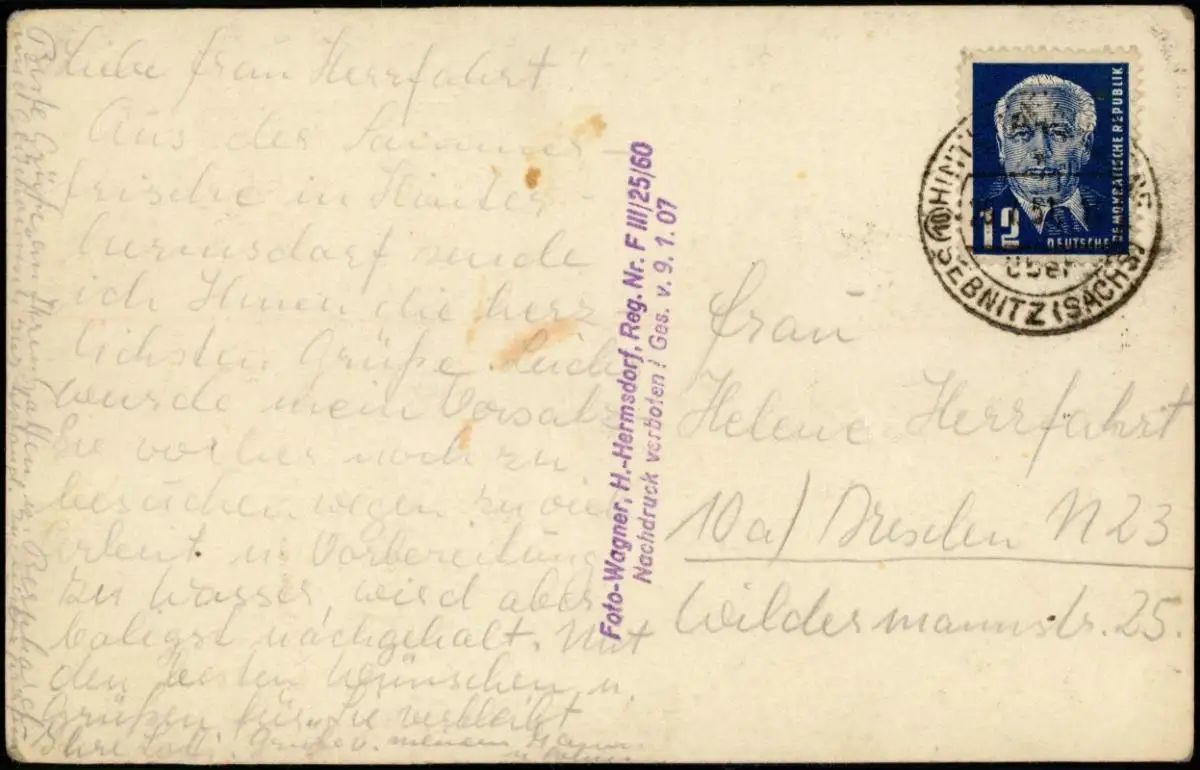 Liebe Frau Herrfahrt!
Aus der Sommer-
frische in Hinter-
hermsdorf sende
ich Ihnen die herz-
lichsten Grüße. Leider
wurde mein Vorsatz
Sie vorher noch zu
besuchen wegen zu viel
Arbeit u. Vorbereitung
zu Wasser, wird aber
baldigst nachgeholt. Mit
den besten Wünschen u.
Grüßen für Sie verbleibt
Ihre Lotti. Grüße v. meinem Mann
Beste Grüße an Ihren Gatten u.
Foto-Wagner, H.-Hermsdorf, Reg. Nr. F III/25/60
Nachdruck verboten! Ges. v. 9. 1. 07
12
DEUTSCHE DEMOKRATISCHE REPUBLIK
(10)
über
SEBNITZ (SACHS)
Frau
Helene Herrfahrt
10a/ Dresden N 23
Wildermannstr. 25.